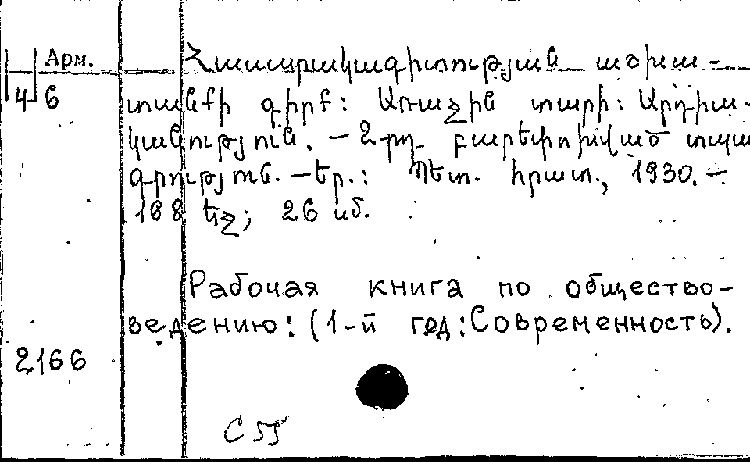 Арм.
4 6
Հասարակագիտության աշխա-
տանքի գիրք: Առաջին տարի: Արդիա-
կանություն. – 2-րդ բարեփոխված տպա
գրություն. – Եր.: Պետ. հրատ., 1930. –
188 եջ; 26 սմ.
Рабочая книга по общество-
ведению: (1-й год: Современность).
2166
C 55